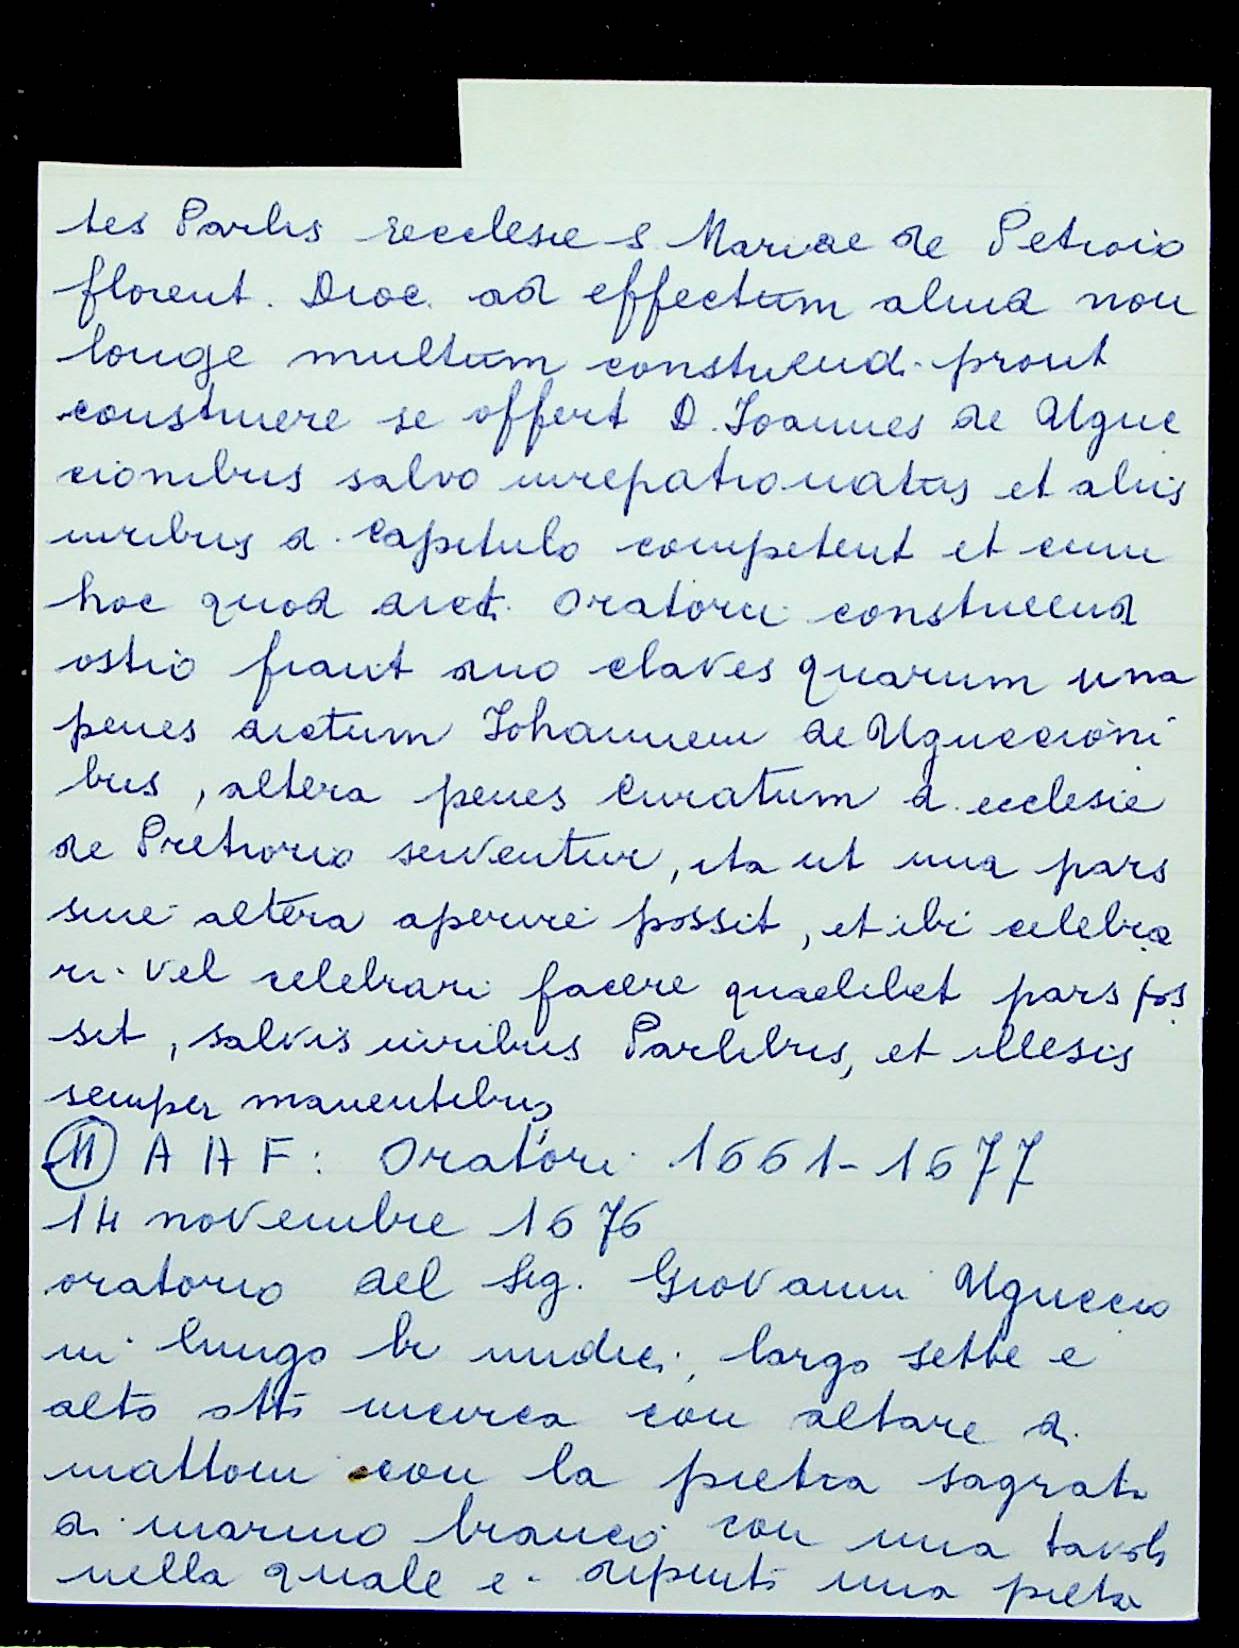 tes Parlis Ecclesie S. Mariae de Petroio
florent. Dioc. ad effectum aliud non
longe multum construend. prout
construere se offert D. Joannes de Uguc
cionibus salvo iurepatronatus et aliis
iuribus d. Capitulo competent et cum
hoc quod dict. Oratorii construend
ostio fiant duo claves quarum una
penes dictum Johannem de Uguccioni
bus, altera penes Curatum d. ecclesie
de Pretrorio serventur, ita ut una pars
sine altera aperire possit, et ibi celebra
ri vel celebrari facere quaelibet pars pos
sit, salvis iuribus Parlibus, et illesis
semper manentibus
11 A A F: Oratori 1661-1677
14 novembre 1676
oratorio del Sig. Giovanni Uguccio
ni lungo br undici, largo sette e
alto otto incirca con altare di
mattoni con la pietra sagrata
di marmo bianco con una tavola
nella quale e dipinto una pietà